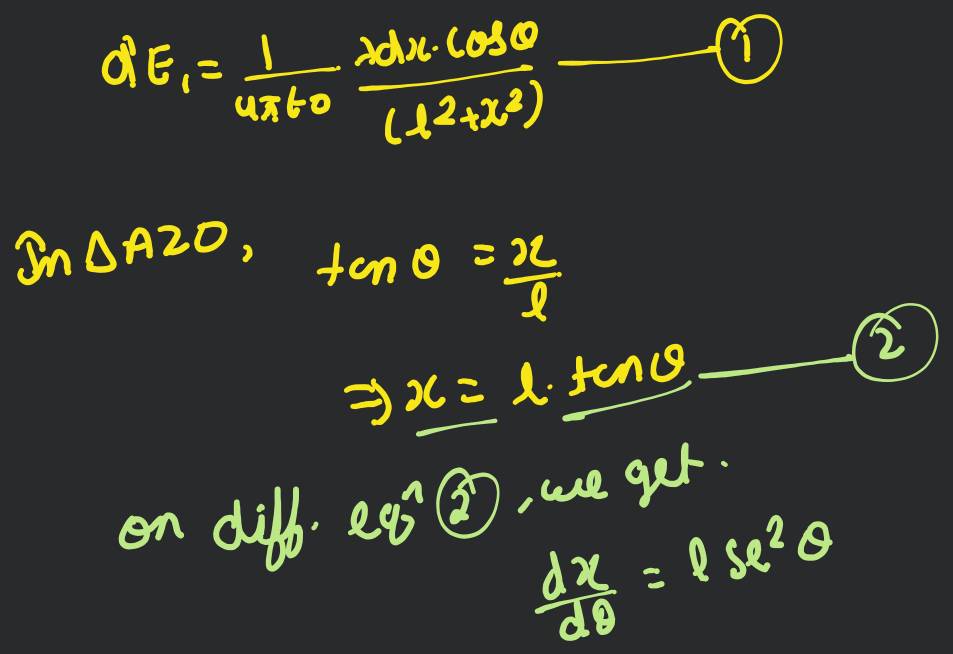 dE₁ = 1/4πε0 λdx·cosθ/(l²+x²) —— ①
In ΔAZO, tanθ = x/l
⇒ x = l·tanθ —— ②
on diff. eqⁿ ②, we get.
dx/dθ = l se² θ